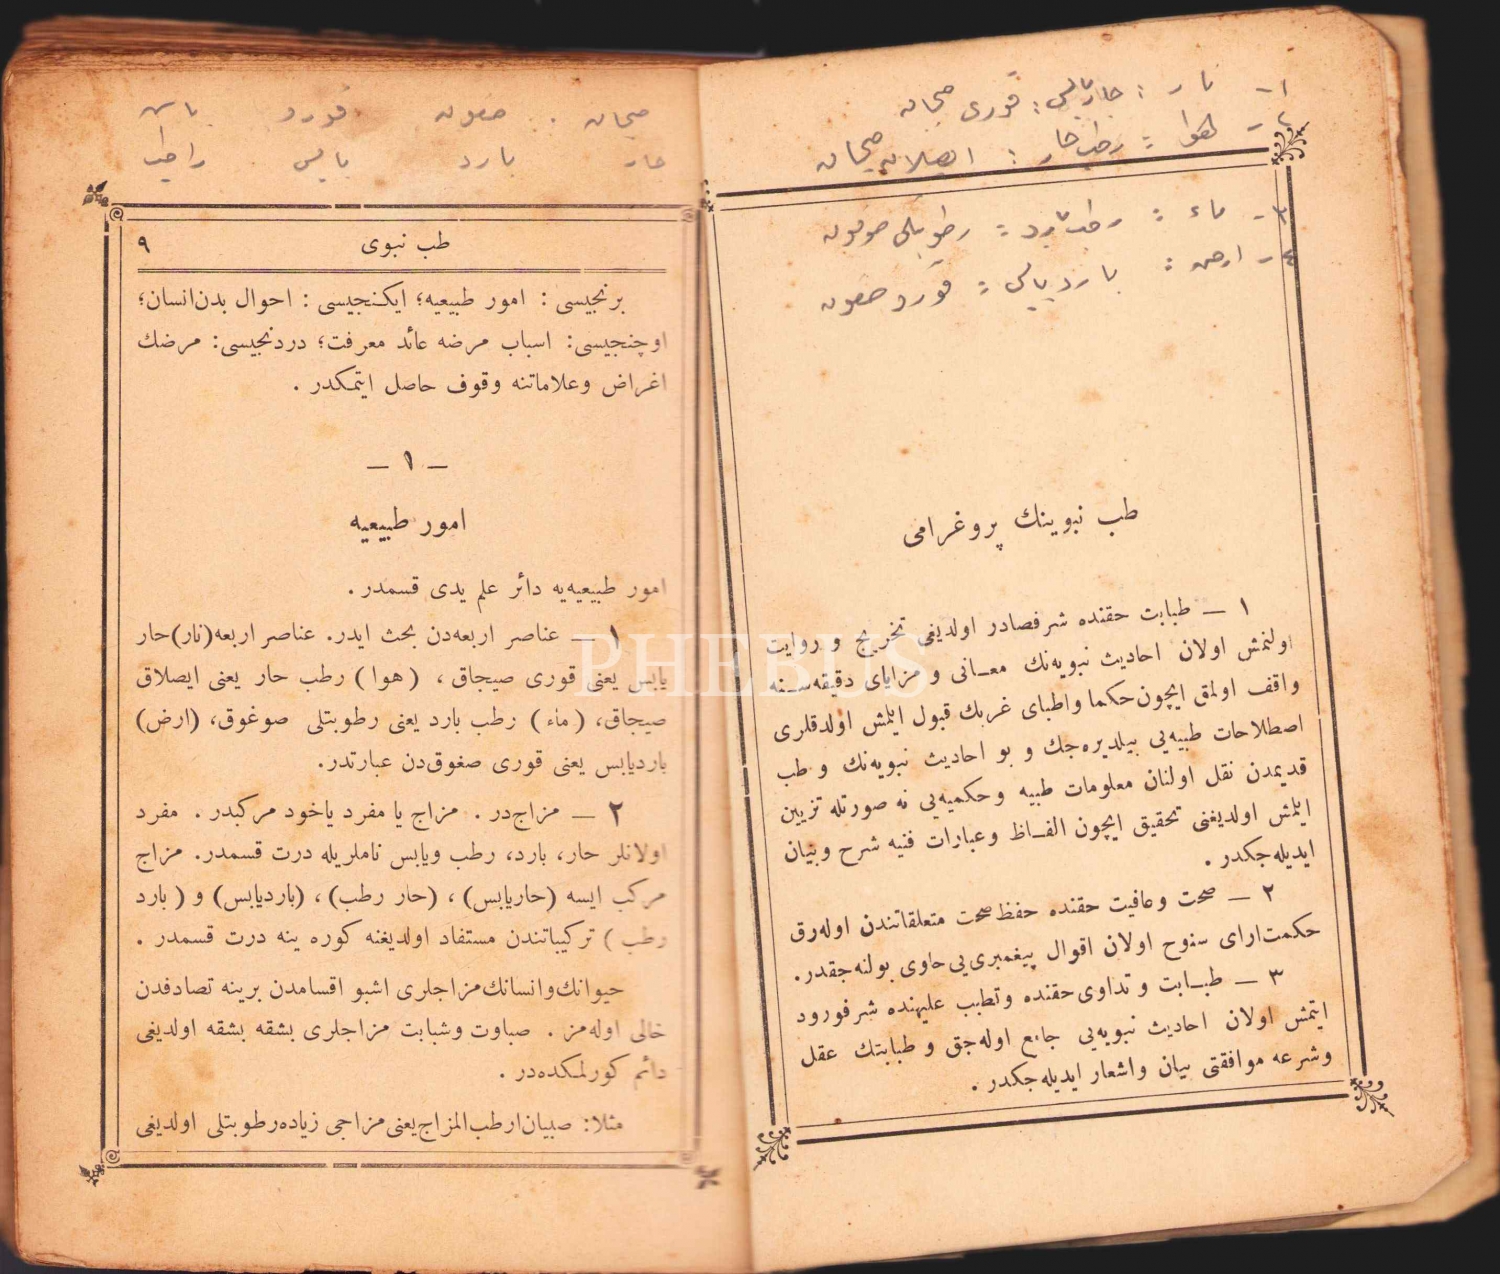 ١- نار : حار يابس : قوری صيجاق
٢- هوا : رطب حار : ايصلاق صيجاق
٣- ماء : رطب بارد : رطوبتلی صوغوق
٤- ارض : بارد يابس : قورو صغوق
طب نبوينك پروغرامی
١ — طبابت حقنده شرفصادر اولديغی تخريج و روايت
اولنمش اولان احاديث نبويه‌نك معـانی و مزايای دقيقه‌سـنه
واقف اولمق ايچون حكما واطبای غربك قبول ايلمش اولدقلری
اصطلاحات طبيه‌يی بيلديره‌جك و بو احاديث نبويه‌نك و طب
قديمدن نقل اولنان معلومات طبيه وحكميه‌يی نه صورتله تزيين
ايلمش اولديغنی تحقيق ايچون الفـاظ وعبارات فنيه شرح وبيان
ايديله‌جكدر .
٢ — صحت وعافيت حقنده حفظ صحت متعلقاتندن اوله‌رق
حكمت‌ارای سنوح اولان اقوال پيغمبری‌يی حاوی بولنه‌جقدر.
٣ — طبـابت و تداوی حقنده وتطبب عليهنده شرفورود
ايتمش اولان احاديث نبويه‌يی جامع اوله‌جق و طبابتك عقل
وشرعه موافقتی بيان واشعار ايديله‌جكدر .
صيجاق . صغوق قورو ياش
حار بارد يابس راطب
طب نبوی ٩
برنجيسی : امور طبيعيه؛ ايكـنجيسی : احوال بدن‌انسان؛
اوچنجيسی: اسباب مرضه عائد معرفت؛ دردنجيسی: مرضك
اغراض وعلاماتنه وقوف حاصل ايتمكدر .
— ١ —
امور طبيعيه
امور طبيعيه‌يه دائر علم يدی قسمدر .
١ — عناصر اربعه‌دن بحث ايدر. عناصر اربعه (نار) حار
يابس يعنی قوری صيجاق ، (هوا) رطب حار يعنی ايصلاق
صيجاق، (ماء) رطب بارد يعنی رطوبتلی صوغوق، (ارض)
بارديابس يعنی قوری صغوق‌دن عبارتدر.
٢ — مزاج‌در . مزاج يا مفرد ياخود مركبدر . مفرد
اولانلر حار، بارد، رطب ويابس ناملريله درت قسمدر. مزاج
مركب ايسه (حاريابس) ، (حار رطب) ، (بارديابس) و (بارد
رطب) تركيباتندن مستفاد اولديغنه كوره ينه درت قسمدر .
حيوانك وانسانك مزاجلری اشبو اقسامدن برينه تصادفدن
خالی اوله‌مز . صباوت وشبابت مزاجلری بشقه بشقه اولديغی
دائم كورلمكده‌در .
مثلا: صبيان ارطب‌المزاج يعنی مزاجی زياده رطوبتلی اولديغی
PHEBUS